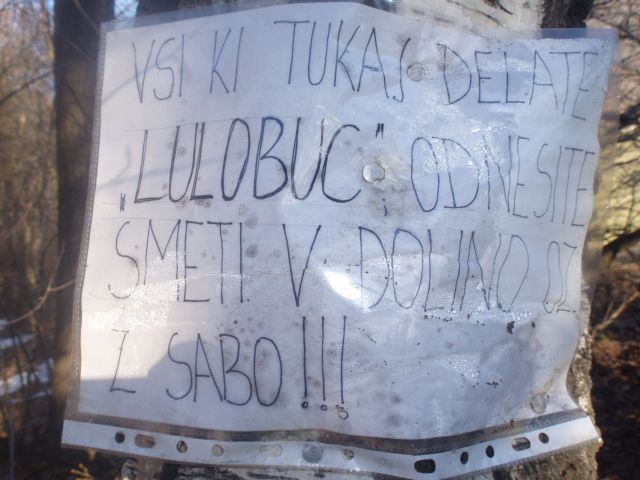 VSI KI TUKAJ DELATE
„LULOBUC“, ODNESITE
SMETI V DOLINO OZ.
Z SABO!!!